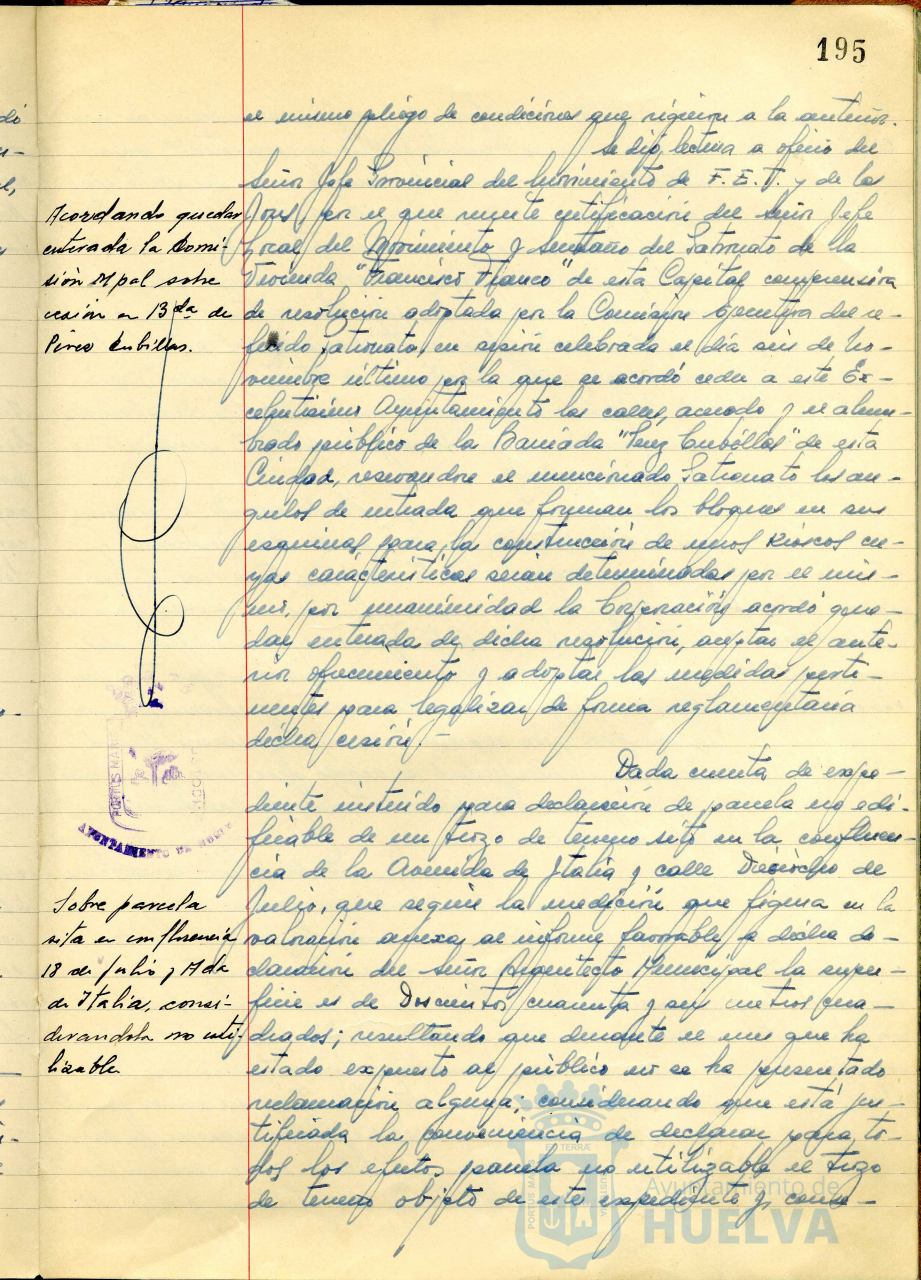 195
el mismo pliego de condiciones que rigieron a la anterior.
Se dió lectura a oficio del
Señor Jefe Provincial del Movimiento de F.E.T. y de las
Jons por el que remite certificación del Señor Jefe
Local del Movimiento y Secretario del Patronato de la
Vivienda "Francisco Franco" de esta Capital comprensiva
de resolución adoptada por la Comisión Ejecutiva del re-
ferido Patronato, en sesión celebrada el día seis de No-
viembre último por la que se acordó ceder a este Ex-
celentísimo Ayuntamiento las calles, acerado y el alum-
brado público de la Barriada "Perez Cubillas" de esta
Ciudad, reservandose el mencionado Patronato los an-
gulos de entrada que forman los bloques en sus
esquinas para la construcción de unos Kioscos cu-
yas características serían determinadas por el mis-
mo, por unanimidad la Corporación acordó que-
dar enterada de dicha resolución, aceptar el ante-
rior ofrecimiento y adoptar las medidas perti-
nentes para legalizar de forma reglamentaria
dicha cesión.-
Dada cuenta de expe-
diente instruido para declaración de parcela no edi-
ficable de un trozo de terreno sito en la confluen-
cia de la Avenida de Italia y calle Dieciocho de
Julio, que según la medición que figura en la
valoración anexa al informe favorable a dicha de-
claración del Señor Arquitecto Municipal la super-
ficie es de Doscientos cuarenta y seis metros cua-
drados; resultando que durante el mes que ha
estado expuesto al público no se ha presentado
reclamación alguna; considerando que está jus-
tificada la conveniencia de declarar para to-
dos los efectos parcela no utilizable el trozo
de terreno objeto de este expediente y, como-
Acordando quedar
enterada la Comi-
sión Mpal sobre
cesión en Bda de
Pérez Cubillas.
PORTUS MARIS
AYUNTAMIENTO DE HUELVA
Sobre parcela
sita en confluencia
18 de Julio y Avda
de Italia, consi-
derandola no uti-
lizable
Ayuntamiento de
HUELVA